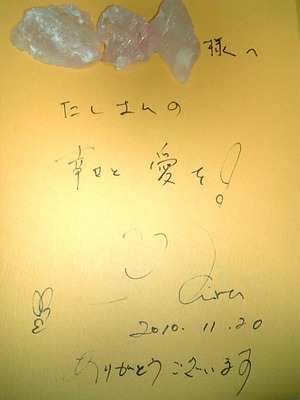 様へ
たしまんの
幸せと愛を!
2010.11.20
ありがとうございます